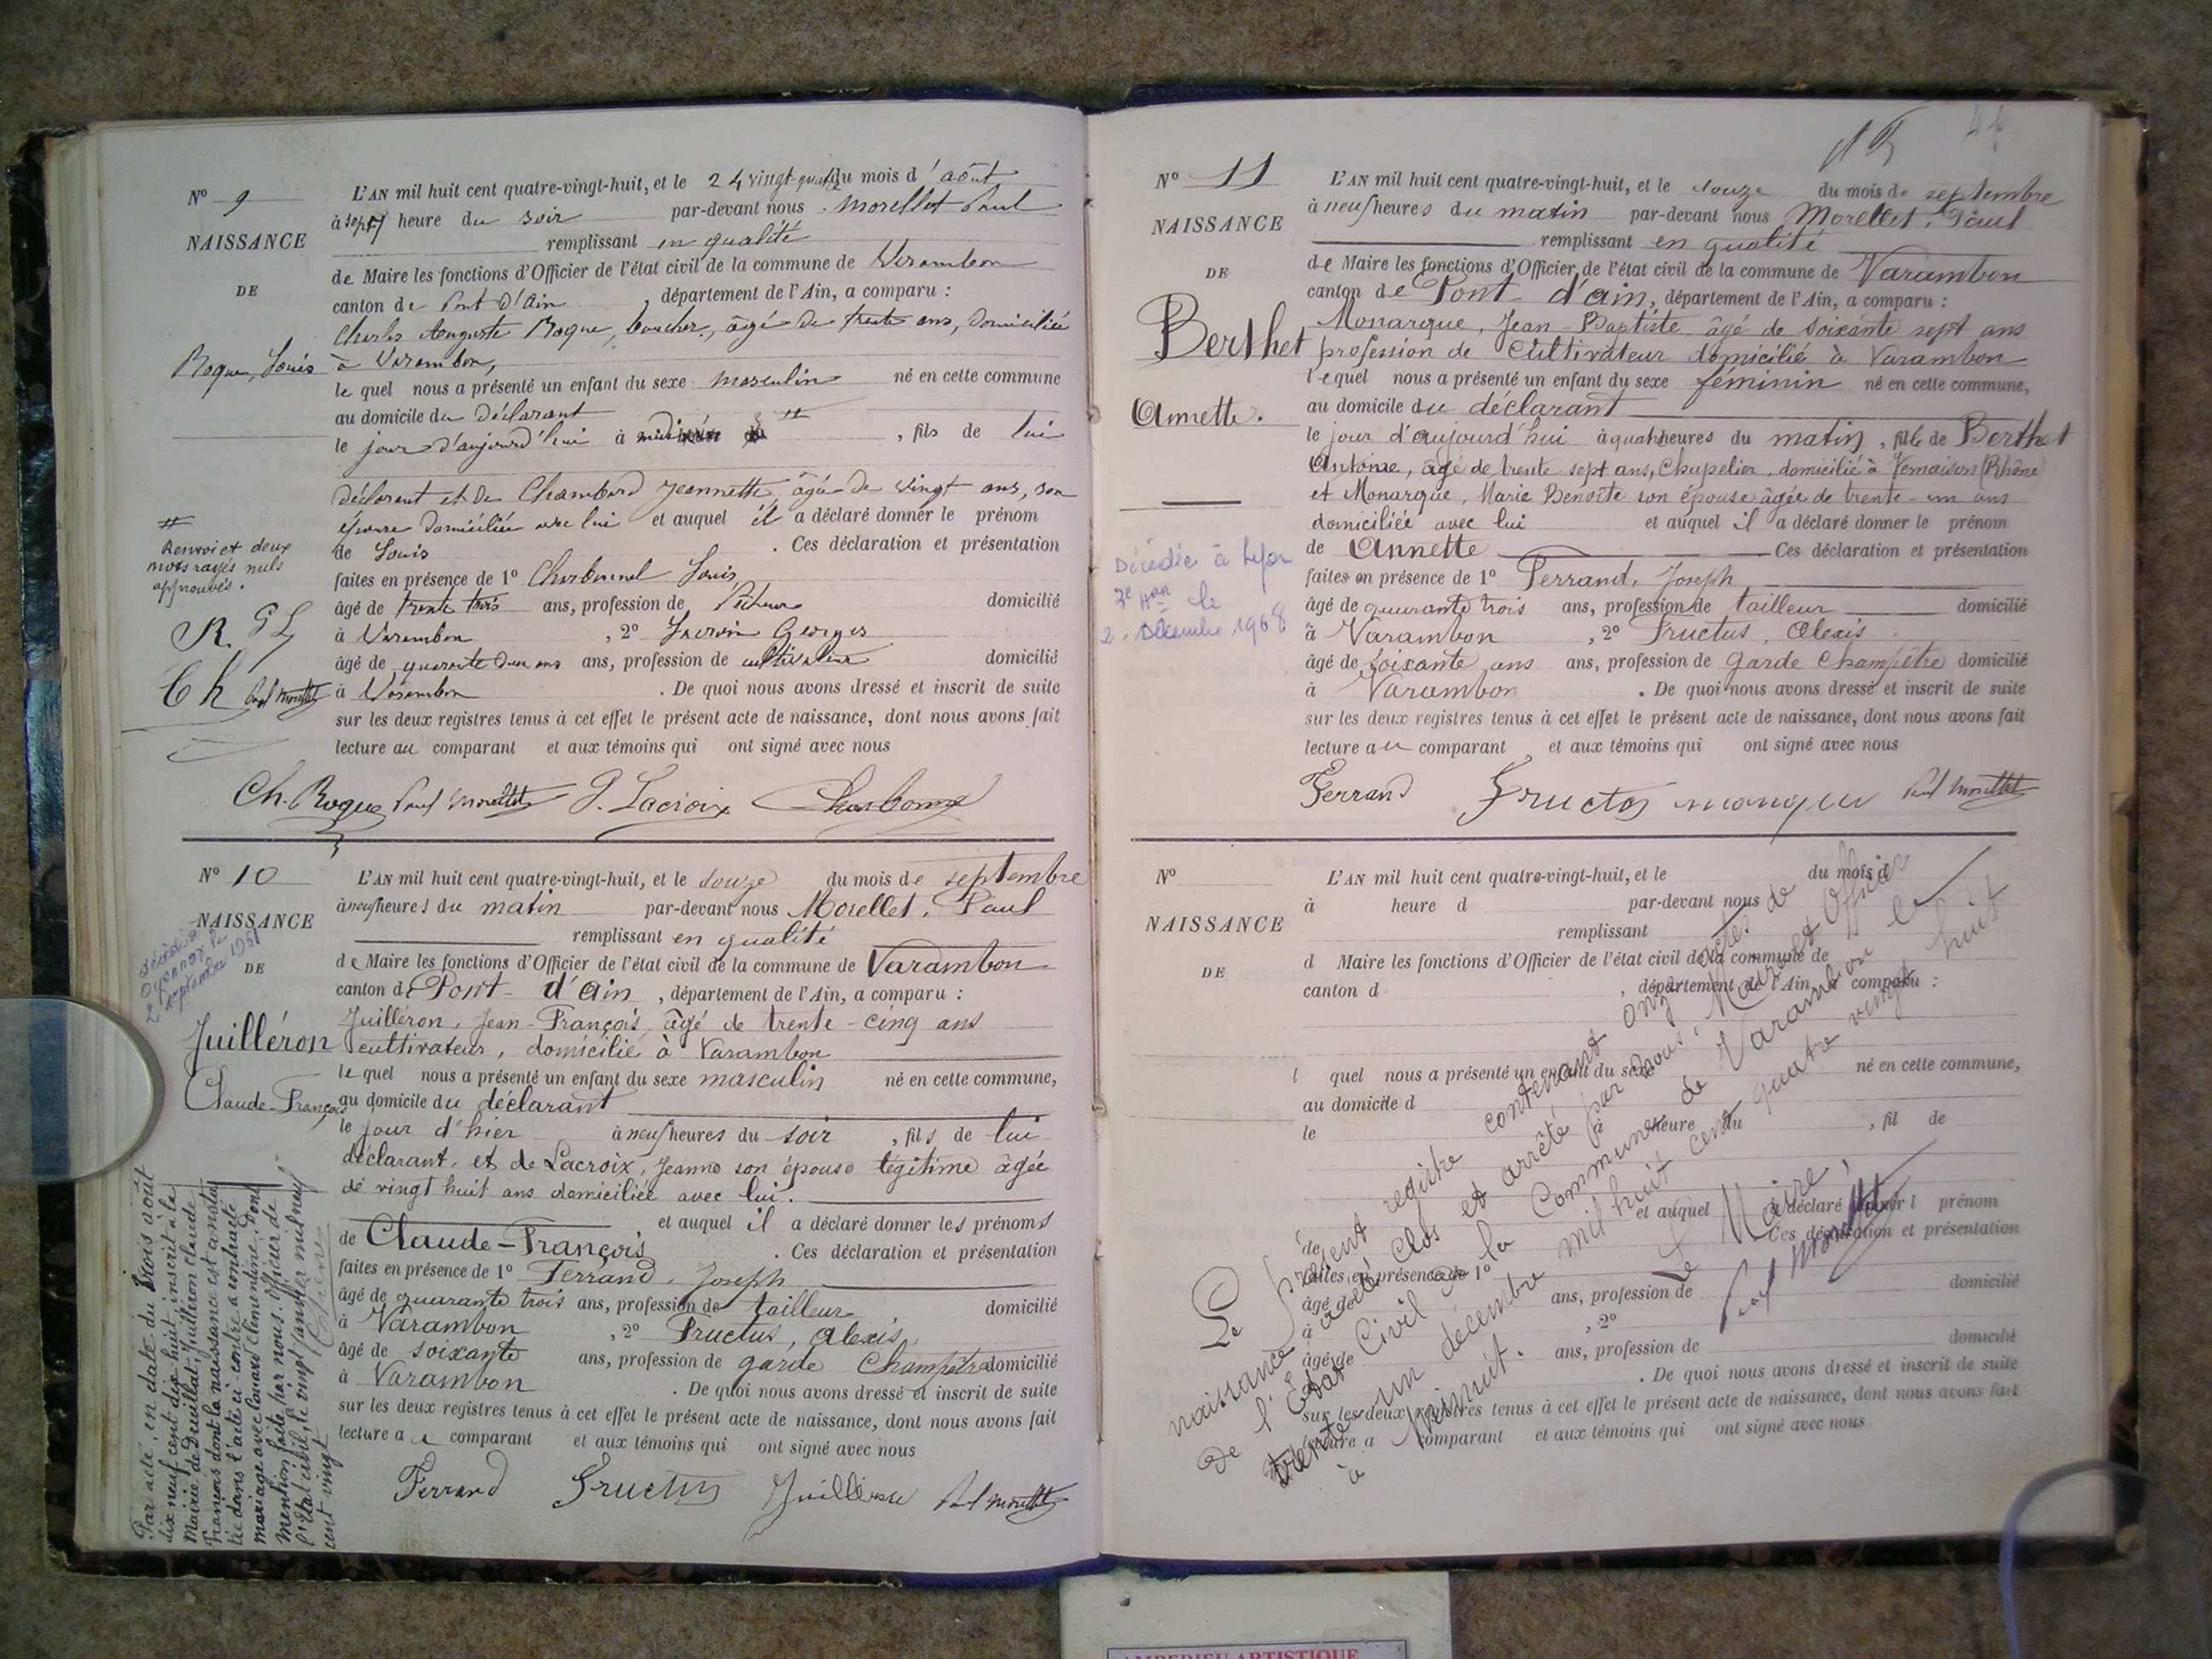 N° 9
NAISSANCE
DE
Roque, Louis
#
Renvoi et deux
mots rayés nuls
approuvés.
R. G L
Ch Paul Morellet
L'AN mil huit cent quatre-vingt-huit, et le 24 vingt-quatre du mois d'août
à sept heure du soir par-devant nous Morellet Paul
remplissant en qualité
de Maire les fonctions d'Officier de l'état civil de la commune de Varambon
canton de Pont d'Ain, département de l'Ain, a comparu :
Charles Auguste Roque, boucher, âgé de trente ans, domicilié
à Varambon,
le quel nous a présenté un enfant du sexe masculin né en cette commune
au domicile du déclarant
le jour d'aujourd'hui à midi #, fils de lui
déclarant et de Chambard Jeannette, âgée de vingt ans, son
épouse domiciliée avec lui et auquel il a déclaré donner le prénom
de Louis. Ces déclaration et présentation
faites en présence de 1° Charbonnel Louis
âgé de trente trois ans, profession de domicilié
à Varambon, 2° Lacroix Georges
âgé de quarante deux ans ans, profession de cultivateur domicilié
à Varambon. De quoi nous avons dressé et inscrit de suite
sur les deux registres tenus à cet effet le présent acte de naissance, dont nous avons fait
lecture au comparant et aux témoins qui ont signé avec nous
Ch. Roque Paul Morellet G. Lacroix Charbonnel
N° 10
NAISSANCE
DE
décédé à
Oyonnax le
2 septembre 1961
Juilléron
Claude-François
L'AN mil huit cent quatre-vingt-huit, et le douze du mois de septembre
à neuf heures du matin par-devant nous Morellet, Paul
remplissant en qualité
de Maire les fonctions d'Officier de l'état civil de la commune de Varambon
canton de Pont-d'Ain, département de l'Ain, a comparu :
Juilléron, Jean-François, âgé de trente-cinq ans
cultivateur, domicilié à Varambon
le quel nous a présenté un enfant du sexe masculin né en cette commune,
au domicile du déclarant
le jour d'hier à neuf heures du soir, fils de lui
déclarant, et de Lacroix, Jeanne son épouse légitime âgée
de vingt huit ans domiciliée avec lui.
et auquel il a déclaré donner les prénoms
de Claude-François. Ces déclaration et présentation
faites en présence de 1° Ferrand, Joseph
âgé de quarante trois ans, profession de tailleur domicilié
à Varambon, 2° Fructus, Alexis,
âgé de soixante ans, profession de garde champêtre domicilié
à Varambon. De quoi nous avons dressé et inscrit de suite
sur les deux registres tenus à cet effet le présent acte de naissance, dont nous avons fait
lecture au comparant et aux témoins qui ont signé avec nous
Ferrand Fructus Juilléron Paul Morellet
Par acte, en date du trois août
dix neuf cent dix huit, inscrit à la
Mairie de Druillat, Juilléron Claude
François dont la naissance est consta
tée dans l'acte ci-contre a contracté
mariage avec Clémentine, Dont
mention faite par nous, officier de
l'état civil, le vingt janvier mil neuf
cent vingt
N° 11
NAISSANCE
DE
Berthet
Annette.
Décédée à Lyon
3e arr le
2 Décembre 1968
L'AN mil huit cent quatre-vingt-huit, et le douze du mois de septembre
à neuf heures du matin par-devant nous Morellet, Paul
remplissant en qualité
de Maire les fonctions d'Officier de l'état civil de la commune de Varambon
canton de Pont-d'Ain, département de l'Ain, a comparu :
Monarque, Jean-Baptiste, âgé de soixante sept ans
profession de cultivateur domicilié à Varambon
lequel nous a présenté un enfant du sexe féminin né en cette commune,
au domicile du déclarant
le jour d'aujourd'hui à quatre heures du matin, fille de Berthet
Antoine, âgé de trente sept ans, Chapelier, domicilié à Vernaison (Rhône)
et Monarque, Marie Benoîte son épouse âgée de trente-un ans
domiciliée avec lui et auquel il a déclaré donner le prénom
de Annette Ces déclaration et présentation
faites en présence de 1° Ferrand, Joseph
âgé de quarante trois ans, profession de tailleur domicilié
à Varambon, 2° Fructus, Alexis
âgé de soixante ans ans, profession de garde champêtre domicilié
à Varambon. De quoi nous avons dressé et inscrit de suite
sur les deux registres tenus à cet effet le présent acte de naissance, dont nous avons fait
lecture au comparant et aux témoins qui ont signé avec nous
Ferrand Fructus Paul Morellet
N°
NAISSANCE
DE
L'AN mil huit cent quatre-vingt-huit, et le du mois d
à heure d par-devant nous
remplissant
d Maire les fonctions d'Officier de l'état civil de la commune de
canton d, département de l'Ain, a comparu :
l quel nous a présenté un enfant du sexe né en cette commune,
au domicile d
le à heure du, fil de
et auquel a déclaré donner l prénom
de Ces déclaration et présentation
faites en présence de 1°
âgé de ans, profession de domicilié
à, 2°
âgé de ans, profession de domicilié
à. De quoi nous avons dressé et inscrit de suite
sur les deux registres tenus à cet effet le présent acte de naissance, dont nous avons fait
lecture a comparant et aux témoins qui ont signé avec nous
Le présent registre contenant onze actes de
naissance a été clos et arrêté par nous, Maire et Officier
de l'État Civil de la Commune de Varambon le
trente-un décembre mil huit cent quatre vingt huit
à minuit.
Le Maire,
Paul Morellet